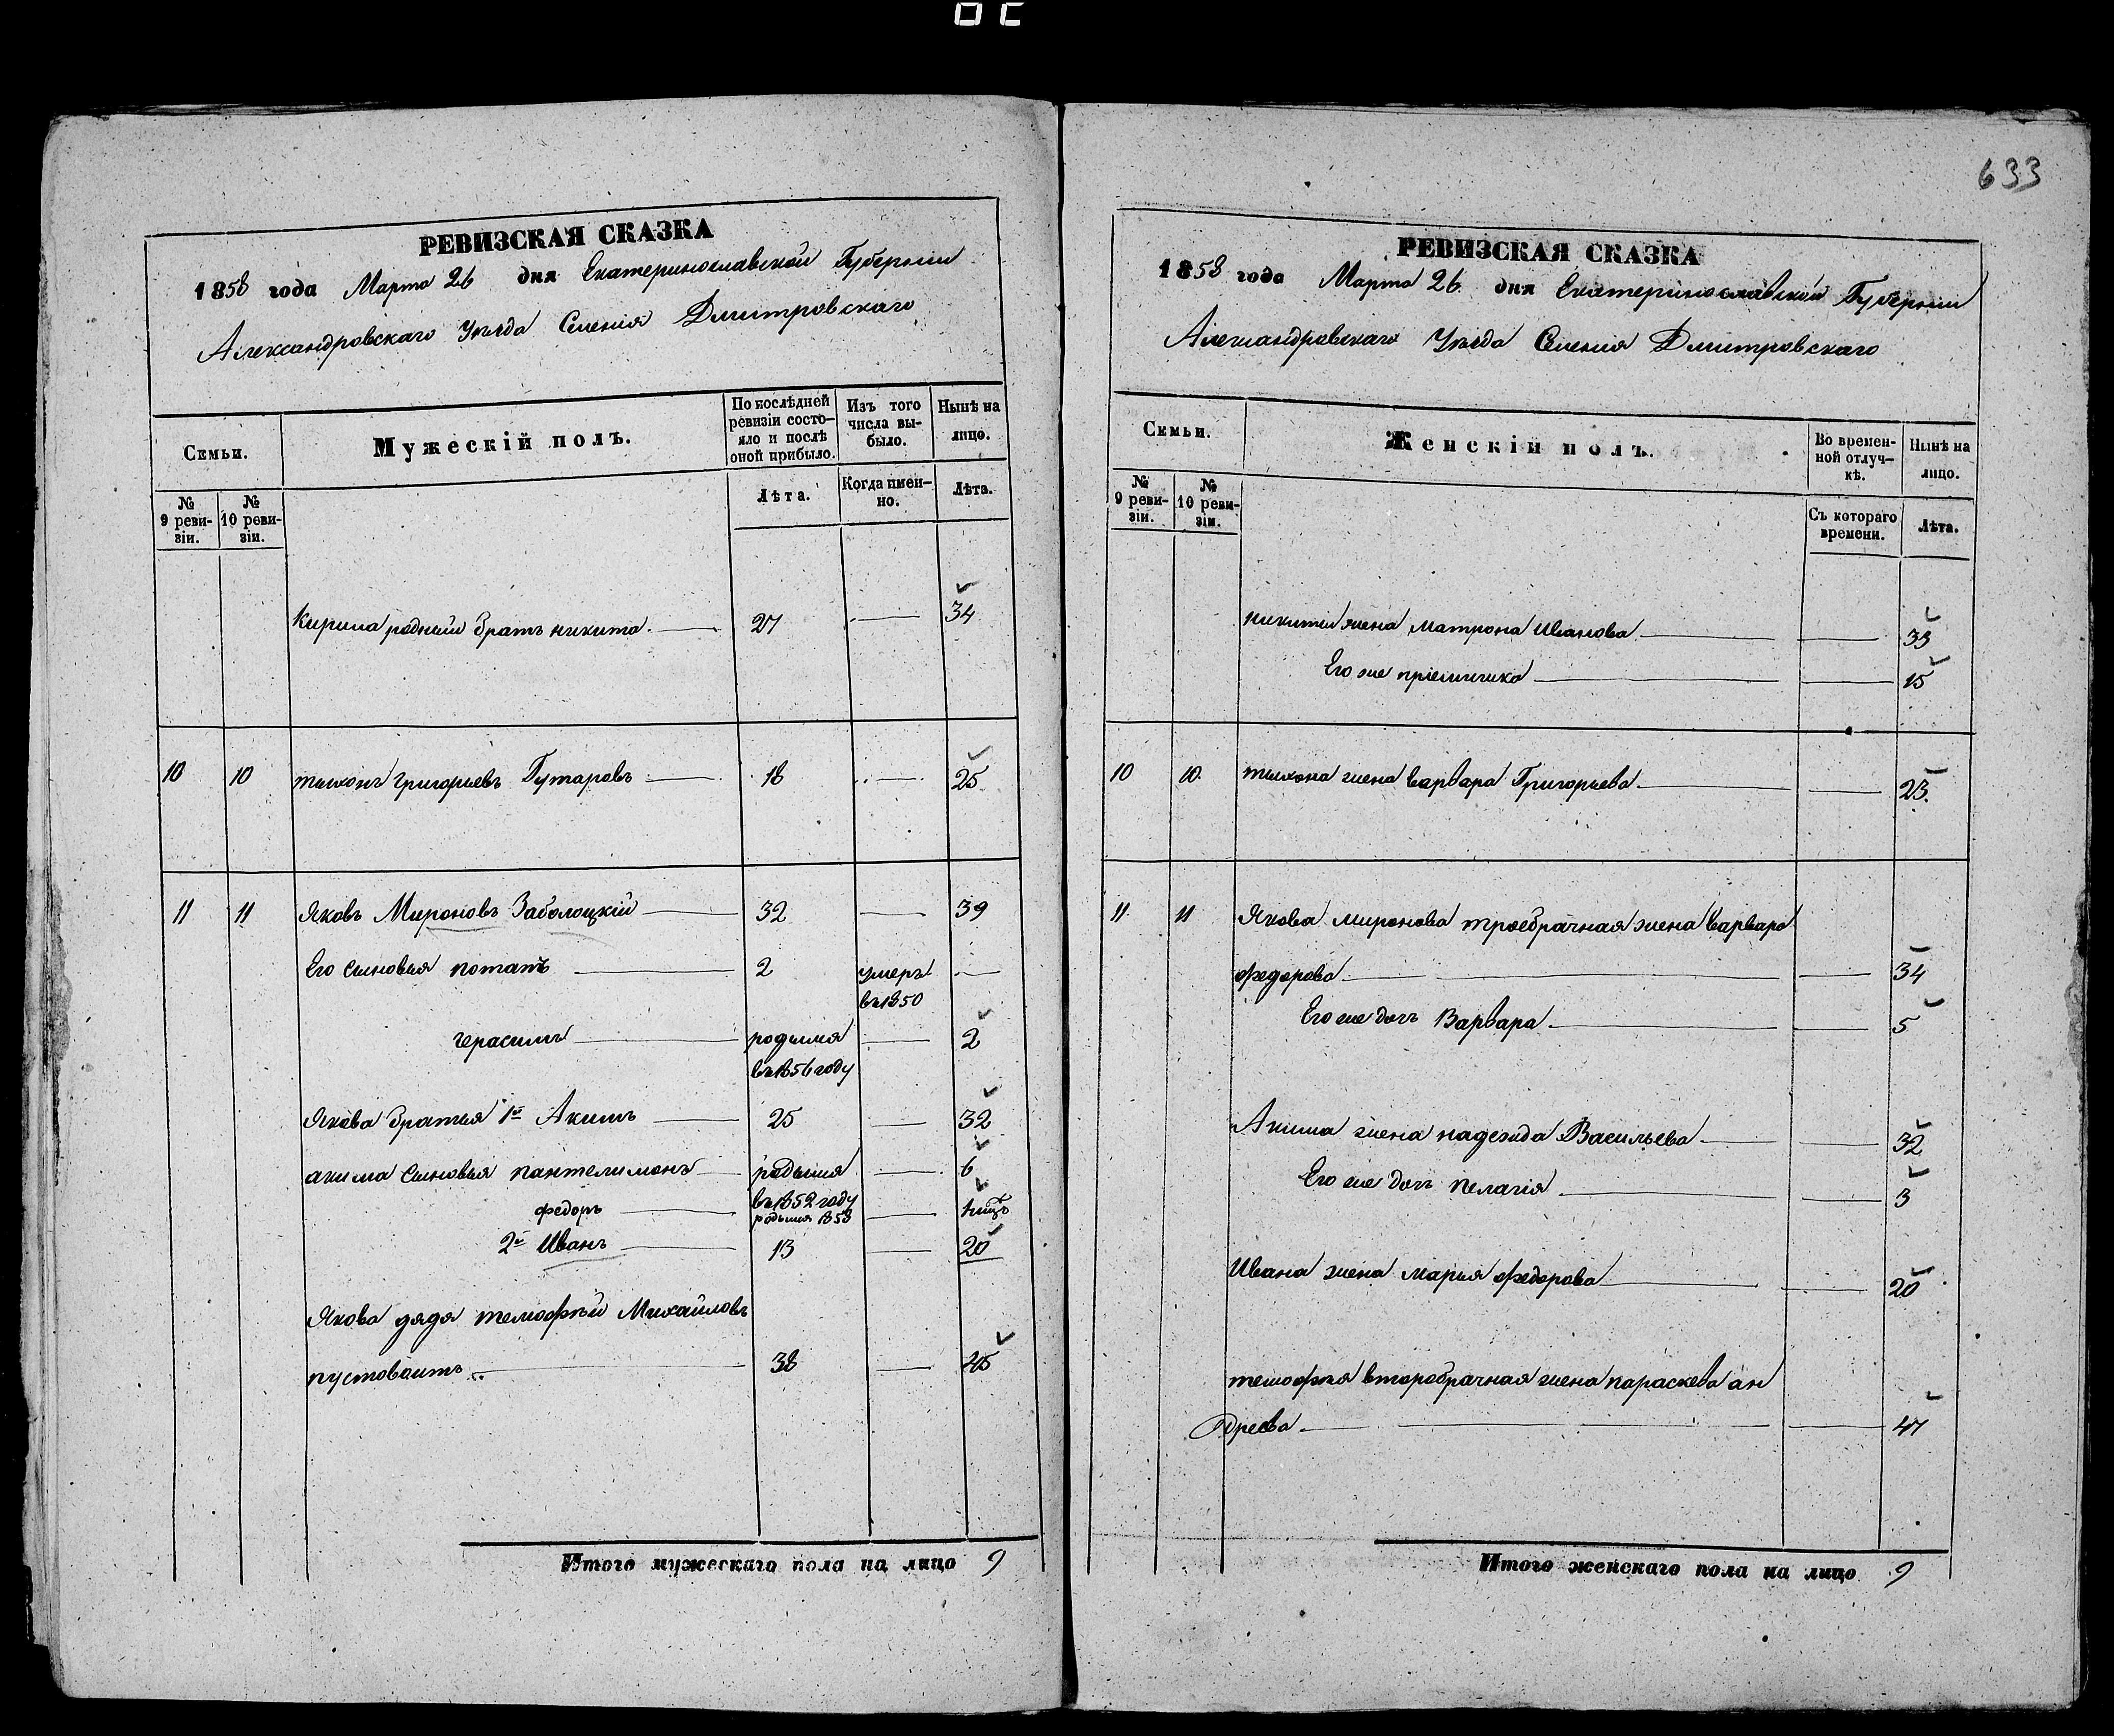 РЕВИЗСКАЯ СКАЗКА
1858 года Марта 26 дня Екатеринославской Губернии
Александровскаго Уезда Селения Дмитровскаго
Семьи.
Мужескій полъ.
По послѣдней ревизіи состояло и послѣ оной прибыло.
Изъ того числа выбыло.
Нынѣ на лицо.
№ 9 ревизіи.
№ 10 ревизіи.
Лѣта.
Когда именно.
Лѣта.
Кирила родный братъ никита 27 — 34
10 10 тихонъ григорьевъ Гутаровъ 18 — 25
11 11 Яковъ Мироновъ Заболоцкій 32 — 39
Его сыновья потапъ 2 умеръ —
въ 1850
герасимъ родился — 2
въ 1856 году
Якова братья 1й Акимъ 25 — 32
акима сыновья пантелимонъ родился — 6
въ 1852 году
федоръ родился 1858 —
2й Иванъ 13 — 20
Якова дядя тимофѣй Михайловъ
пустовойтъ 38 — 45
Итого мужескаго пола на лицо 9
633
РЕВИЗСКАЯ СКАЗКА
1858 года Марта 26 дня Екатеринославской Губернии
Александровскаго Уезда Селения Дмитровскаго
Семьи.
Женскій полъ.
Во временной отлучкѣ.
Нынѣ на лицо.
№ 9 ревизіи.
№ 10 ревизіи.
Съ котораго времени.
Лѣта.
никиты жена Матрона Иванова — 33
Его же — 15
10 10. тихона жена варвара Григорьева — 23.
11. 11 Якова миронова троебрачная жена варвара
федорова — 34
Его же дочь Варвара — 5
Акима жена надежда Васильева — 32
Его же дочь пелагія — 3
Ивана жена марья федорова — 20
тимофея второбрачная жена параскева ан
дреева — 47
Итого женскаго пола на лицо 9